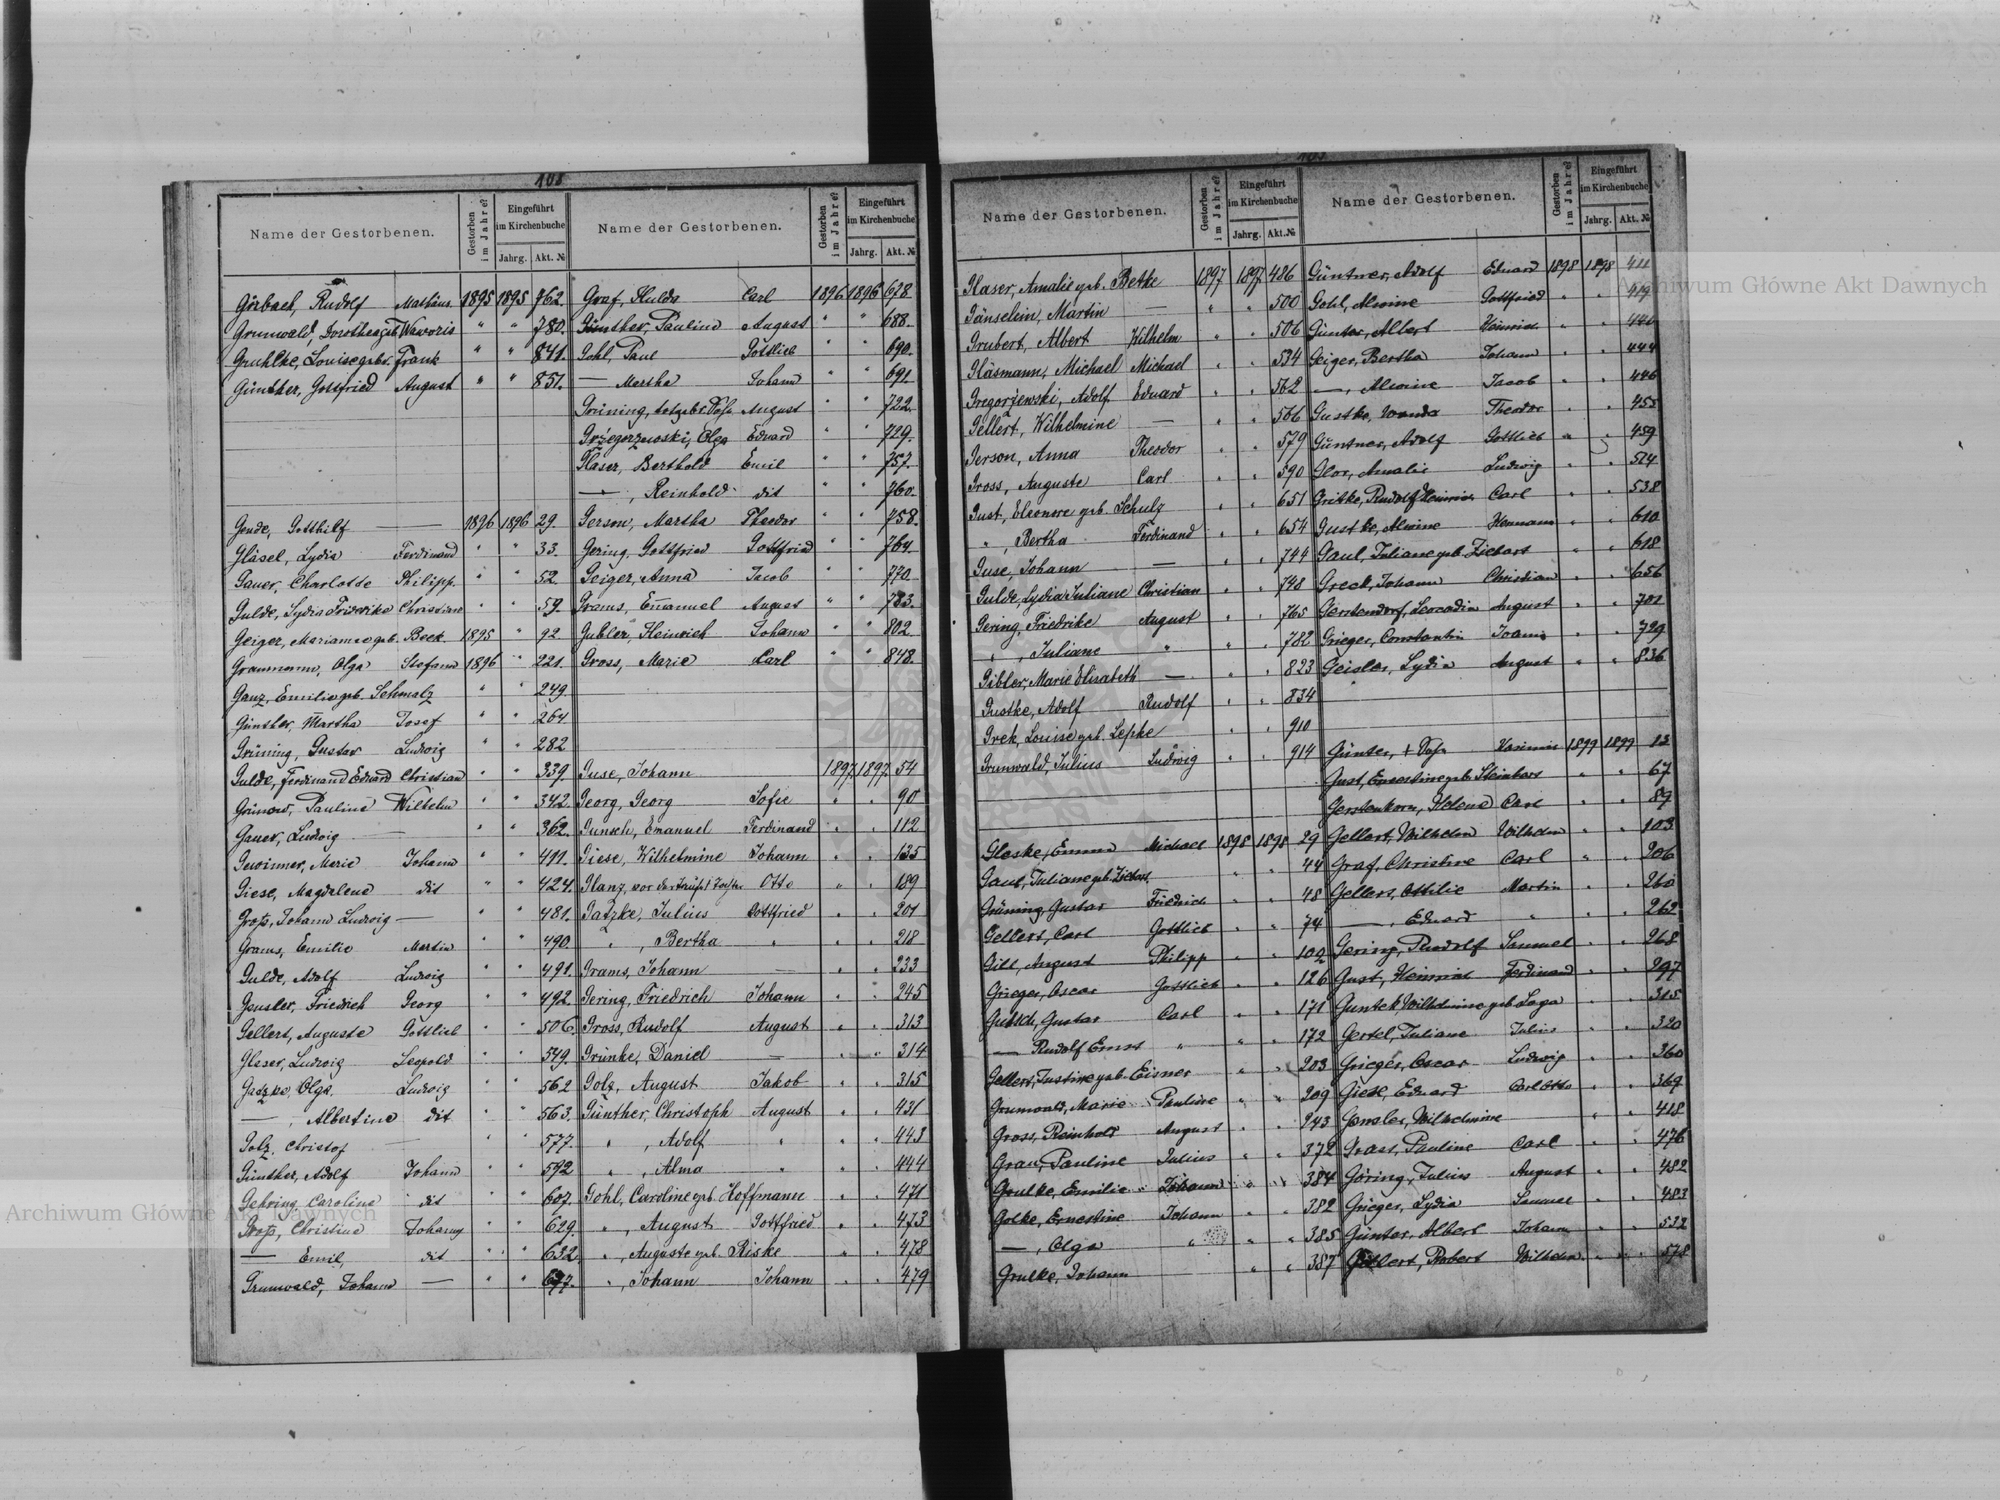 108
Name der Gestorbenen.
Gestorben im Jahre?
Eingeführt im Kirchenbuche
Jahrg. Akt. №
Görbach, Rudolf Mathäus 1895 1895 762.
Grunwald, Dorothea geb. Wavoris " " 780.
Gruhlke, Louise gebr. Frank " " 841.
Günther, Gottfried August " " 851.
Gende, Gotthilf — 1896 1896 29.
Gläsel, Lydia Ferdinand " " 33.
Gauer, Charlotte Philipp. " " 52.
Gulde, Lydia Friderike Christian " " 59.
Geiger, Mariamne geb. Beck 1895 " 92
Graumann, Olga Stefann 1896 " 221.
Ganz, Emilie geb. Schmalz " " 249.
Günther, Martha Josef " " 264
Grüning, Gustav Ludwig " " 282
Gulde, Ferdinand Eduard Christian " " 339.
Grünow, Pauline Wilhelm " " 342.
Gauer, Ludwig — " " 362.
Gewinner, Marie Johann " " 411.
Giese, Magdelene dit " " 424.
Groß, Johann Ludwig — " " 481.
Grams, Emilie Martin " " 490.
Gulde, Adolf Ludwig " " 491.
Gensler, Friedrich Georg " " 492.
Gellert, Auguste Gottlieb " " 506.
Gleser, Ludwig Leopold " " 549.
Gatzke, Olga. Ludwig " " 562
—, Albertine dit " " 563.
Golz, Christof — " " 577.
Günther, Adolf Johann " " 592
Gehring, Caroline dit " " 607.
Groß, Christine Johann " " 629.
— Emil, dit " " 632.
Grunwald, Johann — " " 677.
Name der Gestorbenen.
Gestorben im Jahre?
Eingeführt im Kirchenbuche
Jahrg. Akt. №
Graf, Hulda Carl 1896 1896 678
Günther, Pauline August " " 688.
Gohl, Paul Gottlieb " " 690.
— Martha Johann " " 691.
Grüning, totgeb. Sohn August " " 722.
Grzegorzewski, Olga Eduard " " 729.
Glaser, Berthold Emil " " 757.
—, Reinhold dit " " 760.
Gerson, Martha Theodor " " 758.
Gering, Gottfried Gottfried " " 764.
Geiger, Anna Jacob " " 770.
Grams, Emanuel August " " 783.
Gubler, Heinrich Johann " " 802.
Gross, Marie Carl " " 848.
Guse, Johann 1897 1897. 54
Georg, Georg Sofie " " 90
Gunsch, Emanuel Ferdinand " " 112
Giese, Wilhelmine Johann " " 135
Glanz, vor der Taufe † Tochter Otto " " 189
Gatzke, Julius Gottfried " " 201
", Bertha " " " 218
Grams, Johann — " " 233
Gering, Friedrich Johann " " 245
Gross, Rudolf August " " 313
Grünke, Daniel — " " 314
Golz, August Jakob " " 315
Günther, Christoph August " " 431
", Adolf " " " 443
", Alma " " " 444
Gohl, Caroline geb. Hoffmann " " 471
", August Gottfried " " 473
", Auguste geb. Riske " " 478
", Johann Johann " " 479
Name der Gestorbenen.
Gestorben im Jahre?
Eingeführt im Kirchenbuche
Jahrg. Akt. №
Glaser, Amalie geb. Betke 1897 1897 486
Gänselein, Martin — " " 500
Grubert, Albert Wilhelm " " 506
Gläsmann, Michael Michael " " 534
Gregorzewski, Adolf Eduard " " 562
Gellert, Wilhelmine — " " 566
Gerson, Anna Theodor " " 579
Gross, Auguste Carl " " 590
Gust, Eleonore geb. Schulz " " 651
", Bertha Ferdinand " " 654
Guse, Johann — " " 744
Gulde, Lydia Juliane Christian " " 748
Gering, Friedrike August " " 765
", Juliane " " " 782
Gibler, Marie Elisabeth — " " 823
Gustke, Adolf Rudolf " " 834
Grek, Louise geb. Lepke " " 910
Grunwald, Julius Ludwig " " 914
Gleske, Emma Michael 1898 1898 29
Gaul, Juliane geb. Ziebart " " 44
Grüning, Gustav Friedrich " " 48
Gellert, Carl Gottlieb " " 74
Gill, August Philipp " " 109
Grieger, Oscar Gottlieb " " 126
Gutsch, Gustav Carl " " 171
— Rudolf Ernst " " " 172
Gellert, Justine geb. Eisner " " 203
Grunwald, Marie Pauline " " 209
Gross, Reinhold August " " 243
Grau, Pauline Julius " " 372
Grulke, Emilie Johann " " 384
Golke, Ernestine Johann " " 382
—, Olga " " " 385
Grulke, Johann " " 387
Name der Gestorbenen.
Gestorben im Jahre?
Eingeführt im Kirchenbuche
Jahrg. Akt. №
Güntner, Adolf Eduard 1898 1898 411
Gohl, Alwine Gottfried " " 419
Günter, Albert Heinrich " " 440
Geiger, Bertha Johann " " 444
—, Alwine Jacob " " 446
Gustke, Wanda Theodor " " 455
Güntner, Adolf Gottlieb " " 459
Glor, Amalie Ludwig " " 514
Gritke, Rudolf Heinrich Carl " " 538
Gustke, Alwine Hermann " " 610
Gaul, Juliane geb. Ziebart " " 618
Greck, Johann Christian " " 656
Gerstendorf, Leocadia August " " 701
Grieger, Constantin " " 729
Geisler, Lydia August " " 836
Günter, † Sohn Kasimir 1899 1899 13
Gust, Ernestine geb. Steinbart " " 67
Gerstenkorn, Helene Carl " " 89
Gellert, Wilhelm Wilhelm " " 103
Graf, Christine Carl " " 206
Gellert, Ottilie Martin " " 260
—, Eduard " " " 262
Gering, Rudolf Samuel " " 268
Gust, Heinrich Ferdinand " " 297
Guntek Wilhelmine geb. Laga " " 315
Gertel, Juliane Julius " " 320
Grieger, Oscar Ludwig " " 360
Giese, Eduard Carl Otto " " 369
Gensler, Wilhelmine " " 418
Grast, Pauline Carl " " 476
Göring, Julius August " " 482
Grieger, Lydia Samuel " " 483
Günter, Albert Johann " " 532
Gellert, Robert Wilhelm " " 578
Archiwum Główne Akt Dawnych
Archiwum Główne Akt Dawnych